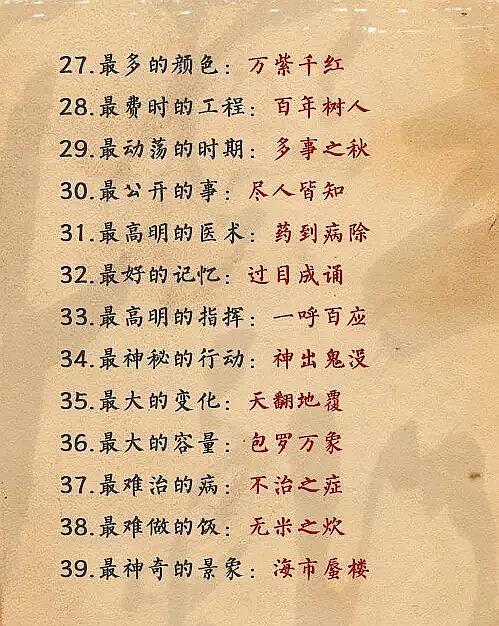 27.最多的颜色：万紫千红
28.最费时的工程：百年树人
29.最动荡的时期：多事之秋
30.最公开的事：尽人皆知
31.最高明的医术：药到病除
32.最好的记忆：过目成诵
33.最高明的指挥：一呼百应
34.最神秘的行动：神出鬼没
35.最大的变化：天翻地覆
36.最大的容量：包罗万象
37.最难治的病：不治之症
38.最难做的饭：无米之炊
39.最神奇的景象：海市蜃楼